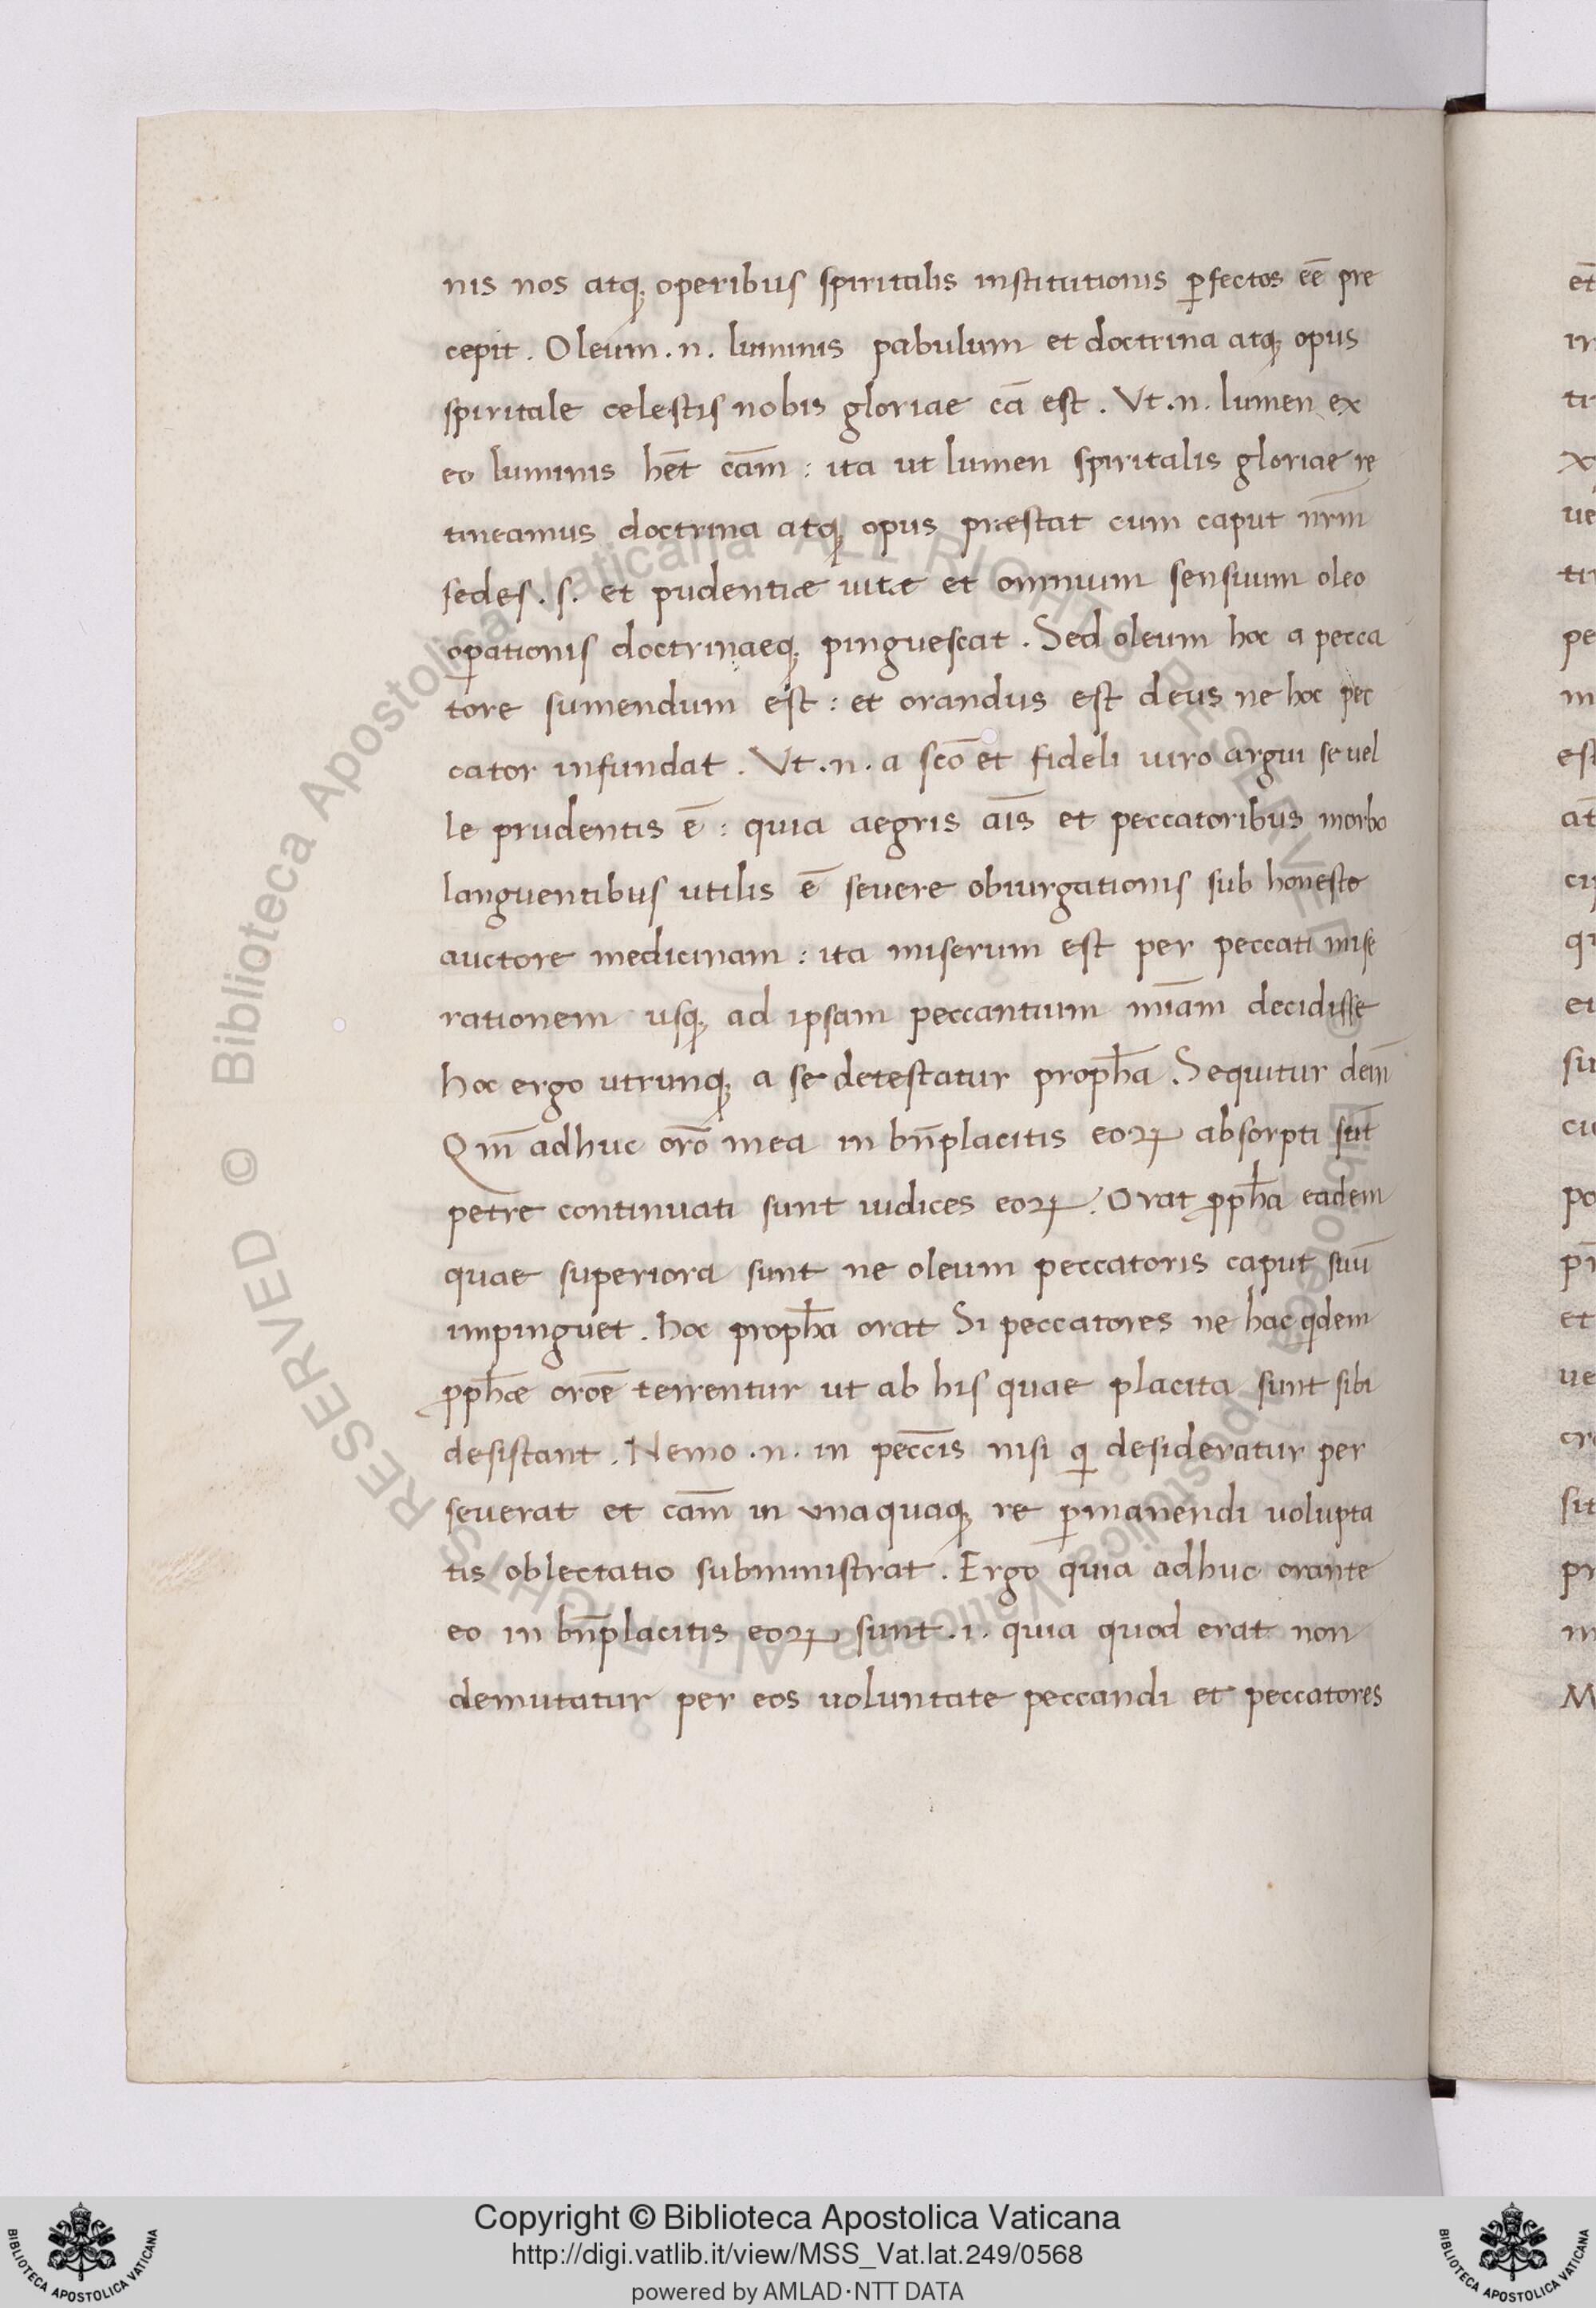 nis nos atq; operibus spiritalis institutionis ꝑfectos eē pre
cepit. Oleum .n. luminis pabulum et doctrina atq; opus
spiritale celestis nobis gloriae cā est. Vt .n. lumen ex
eo luminis hēt cām: ita ut lumen spiritalis gloriae re
tineamus doctrina atq; opus præstat cum caput nr̄m
sedes .s. et pudentiæ uitæ et omnium sensuum oleo
oꝑationis doctrinaeq; pinguescat. Sed oleum hoc a pecca
tore sumendum est: et orandus est deus ne hoc pec
cator infundat. Vt .n. a scō et fideli uiro argui se uel
le prudentis ē: quia aegris aīs et peccatoribus morbo
languentibus utilis ē seuere obiurgationis sub honesto
auctore medicinam: ita miserum est per peccati mise
rationem usq; ad ipsam peccantium mīam decidisse
hoc ergo utrunq; a se detestatur prophā. Sequitur dein̄
Qm̄ adhuc orō mea in bn̄placitis eoꝝ absorpti sūt
petre continuati sunt iudices eoꝝ. Orat ꝓphā eadem
quae superiora sunt ne oleum peccatoris caput suū
impinguet. hoc prophā orat Si peccatores ne hac qdem
ꝓphæ oroē terrentur ut ab his quae placita sunt sibi
desistant. Nemo .n. in pecc̄is nisi q desideratur per
seuerat et cām in unaquaq; re ꝑmanendi uolupta
tis oblectatio subministrat. Ergo quia adhuc orante
eo in bn̄placitis eoꝝ sunt .i. quia quod erat non
demutatur per eos uoluntate peccandi et peccatores
© Biblioteca Apostolica Vaticana ALL RIGHTS RESERVED
© Biblioteca Apostolica Vaticana ALL RIGHTS RESERVED
Copyright © Biblioteca Apostolica Vaticana
http://digi.vatlib.it/view/MSS_Vat.lat.249/0568
powered by AMLAD·NTT DATA
BIBLIOTECA APOSTOLICA VATICANA
BIBLIOTECA APOSTOLICA VATICANA